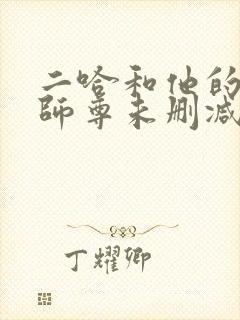 二哈和他的
师尊未删减
丁耀卿